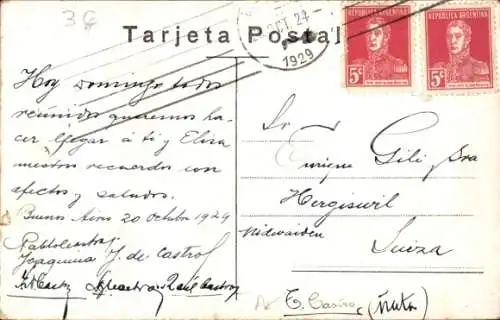 3€
Tarjeta Postal
OCT 24
1929
REPUBLICA ARGENTINA
5c
REPUBLICA ARGENTINA
5c
Hoy Domingo todos
reunidos queremos ha-
cer llegar á ti y Elisa
nuestros recuerdos con
afectos y saludos.
Buenos Aires 20 Octubre 1929
Joaquina J. de Castro
Raúl Castro
Sr
Enrique Gili y Sra
Hergiswil
Nidwalden
Suiza
E. Castro